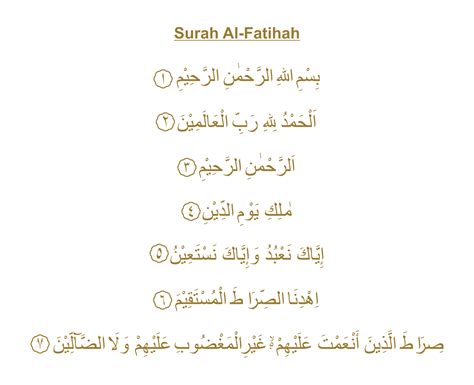 Surah Al-Fatihah
بِسْمِ اللهِ الرَّحْمٰنِ الرَّحِيْمِ ۝١
اَلْحَمْدُ لِلهِ رَبِّ الْعَالَمِيْنَ ۝٢
اَلرَّحْمٰنِ الرَّحِيْمِ ۝٣
مٰلِكِ يَوْمِ الدِّيْنِ ۝٤
إِيَّاكَ نَعْبُدُ وَإِيَّاكَ نَسْتَعِيْنُ ۝٥
اِهْدِنَا الصِّرَا طَ الْمُسْتَقِيْمَ ۝٦
صِرَا طَ الَّذِينَ أَنْعَمْتَ عَلَيْهِمْ ۙ غَيْرِالْمَغْضُوبِ عَلَيْهِمْ وَلَا الضَّآلِّيْنَ ۝٧